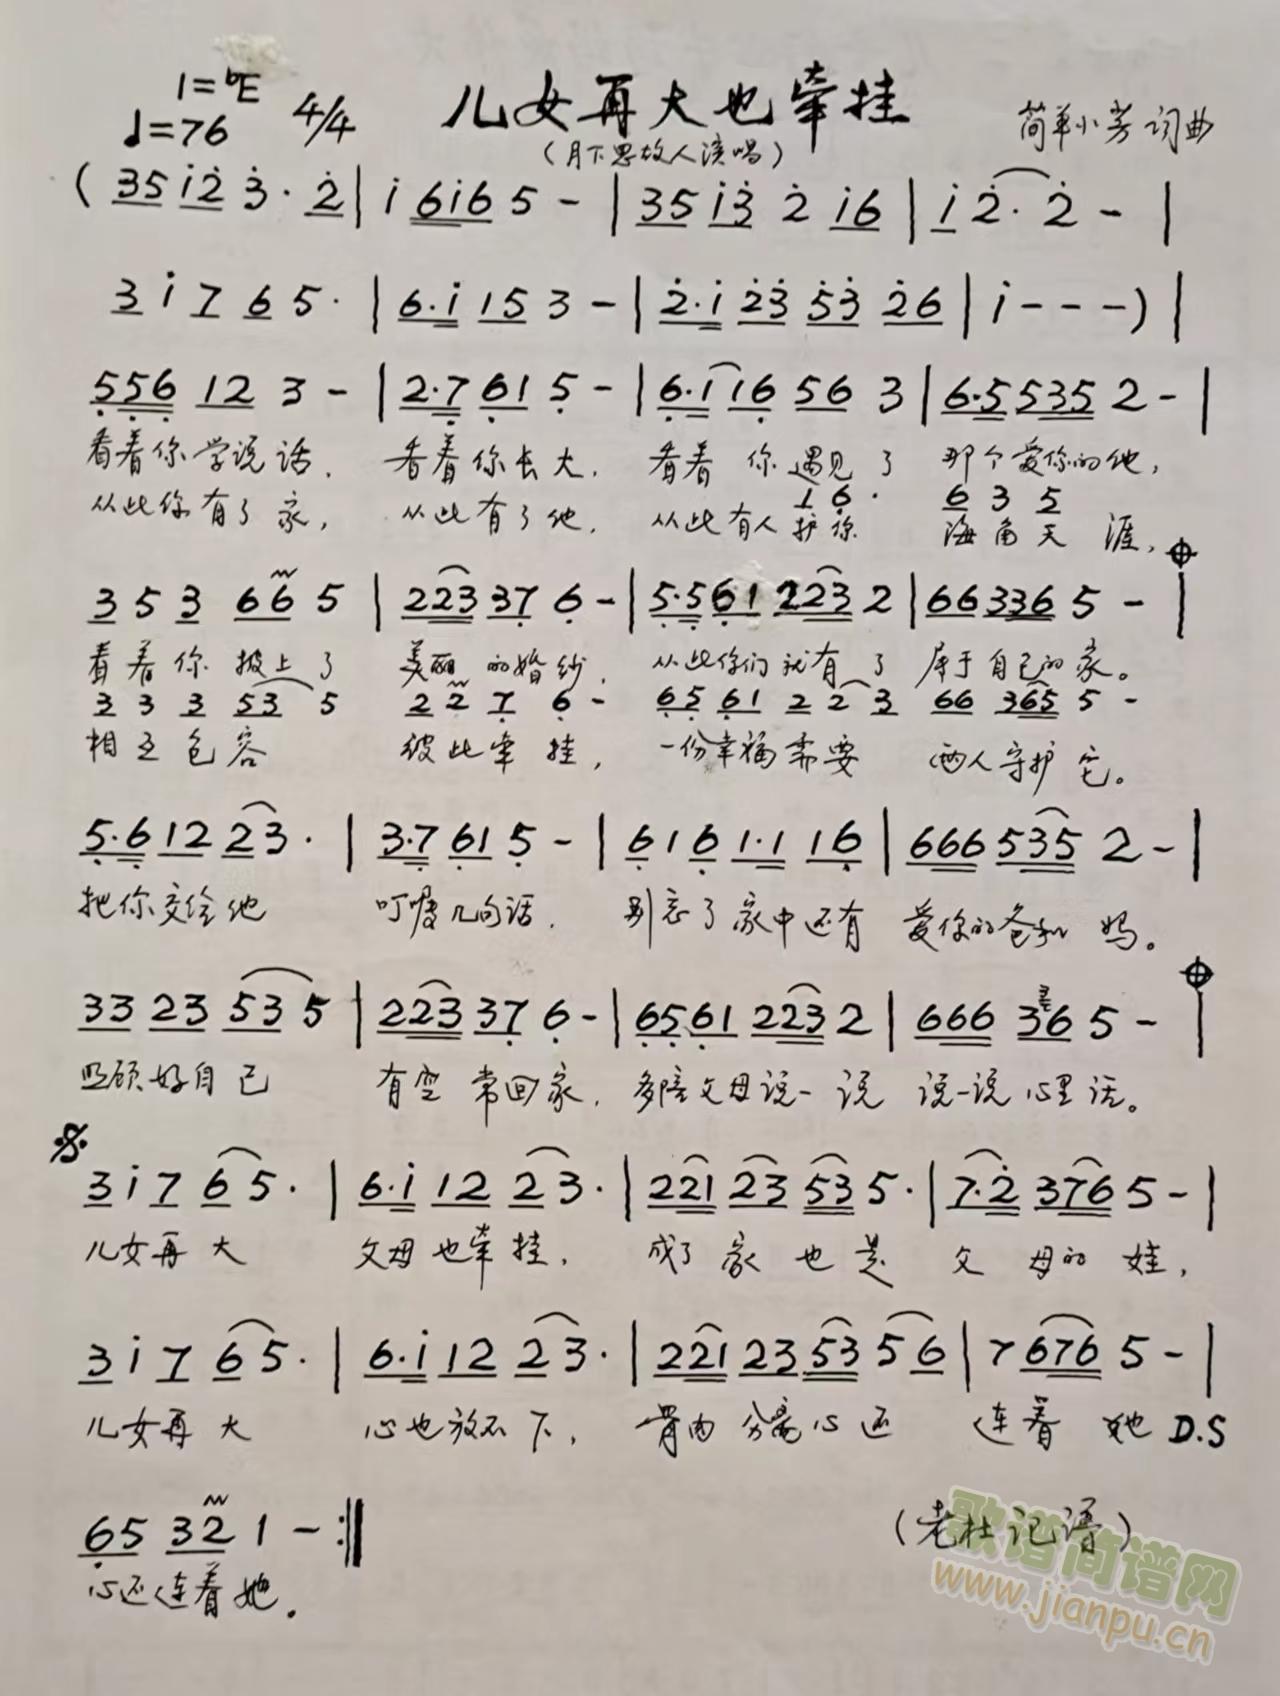 1=♭E
♩=76 4/4 儿女再大也牵挂 简单小芳词曲
（月下思故人演唱）
( 35 i2 3· 2 | i 6i6 5 - | 35 i3 2 i6 | i 2· 2 - |
3 i 7 6 5· | 6·i 15 3 - | 2·i 23 53 26 | i - - - ) |
556 12 3 - | 2·7 61 5 - | 6·1 16 56 3 | 6·5 535 2 - |
看着你学说话, 看着你长大, 看着 你遇见了 那个爱你的他,
1 6· 6 3 5
从此你有了家, 从此有了他, 从此有人护你 海角天涯,
3 5 3 66 5 | 223 37 6 - | 5·561 223 2 | 66 336 5 - |
看着你披上了 美丽的婚纱, 从此你们就有了 属于自己的家。
3 3 3 53 5 2 2 7 6 - 65 61 2 2 3 66 365 5 -
相互包容 彼此牵挂, 一份幸福需要 两人守护它。
5·6 12 23· | 3·7 61 5 - | 6 1 6 1·1 16 | 666 535 2 - |
把你交给他 叮咛几句话, 别忘了家中还有 爱你的爸和妈。
33 23 53 5 | 223 37 6 - | 65 61 223 2 | 666 36 5 - |
照顾好自己 有空常回家, 多陪父母说一说 说一说心里话。
3 i 7 6 5· | 6·i 12 2 3· | 221 23 53 5· | 7·2 376 5 - |
儿女再大 父母也牵挂, 成了家也是 父母的娃,
3 i 7 6 5· | 6·i 12 2 3· | 221 23 53 56 | 7 676 5 - |
儿女再大 心也放不下, 骨肉分离心还 连着她 D.S
65 32 1 - :|
心还连着她。
（老杜记谱）
歌谱简谱网
www.jianpu.cn